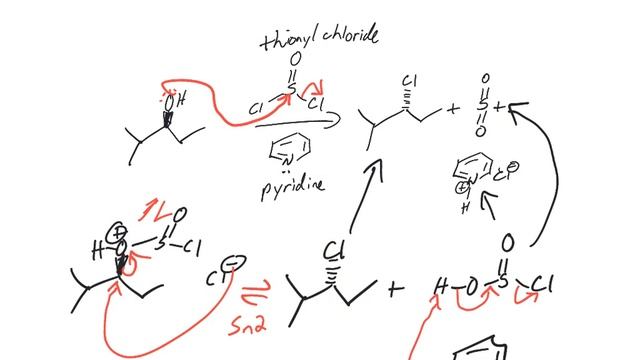 thionyl chloride
O
ÖH
S
Cl Cl
Cl
+
O
S +
O
N
pyridine
N Cl⊖
⊕
H
⊕
H-O-S-Cl
O
Cl⊖
Sn2
Cl
+
O
H-O-S-Cl